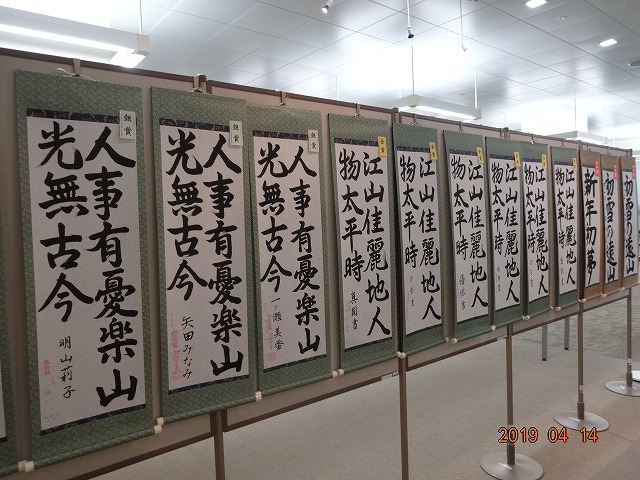 銀賞
人事有憂楽山
光無古今
明山莉子
銀賞
人事有憂楽山
光無古今
矢田みなみ
銀賞
人事有憂楽山
光無古今
一ノ瀬美香
江山佳麗地人
物太平時
江山佳麗地人
物太平時
江山佳麗地人
物太平時
江山佳麗地人
物太平時
江山佳麗地人
物太平時
江山佳麗地人
物太平時
新年初夢
初雪の遠山
初雪の遠山
2019 04 14